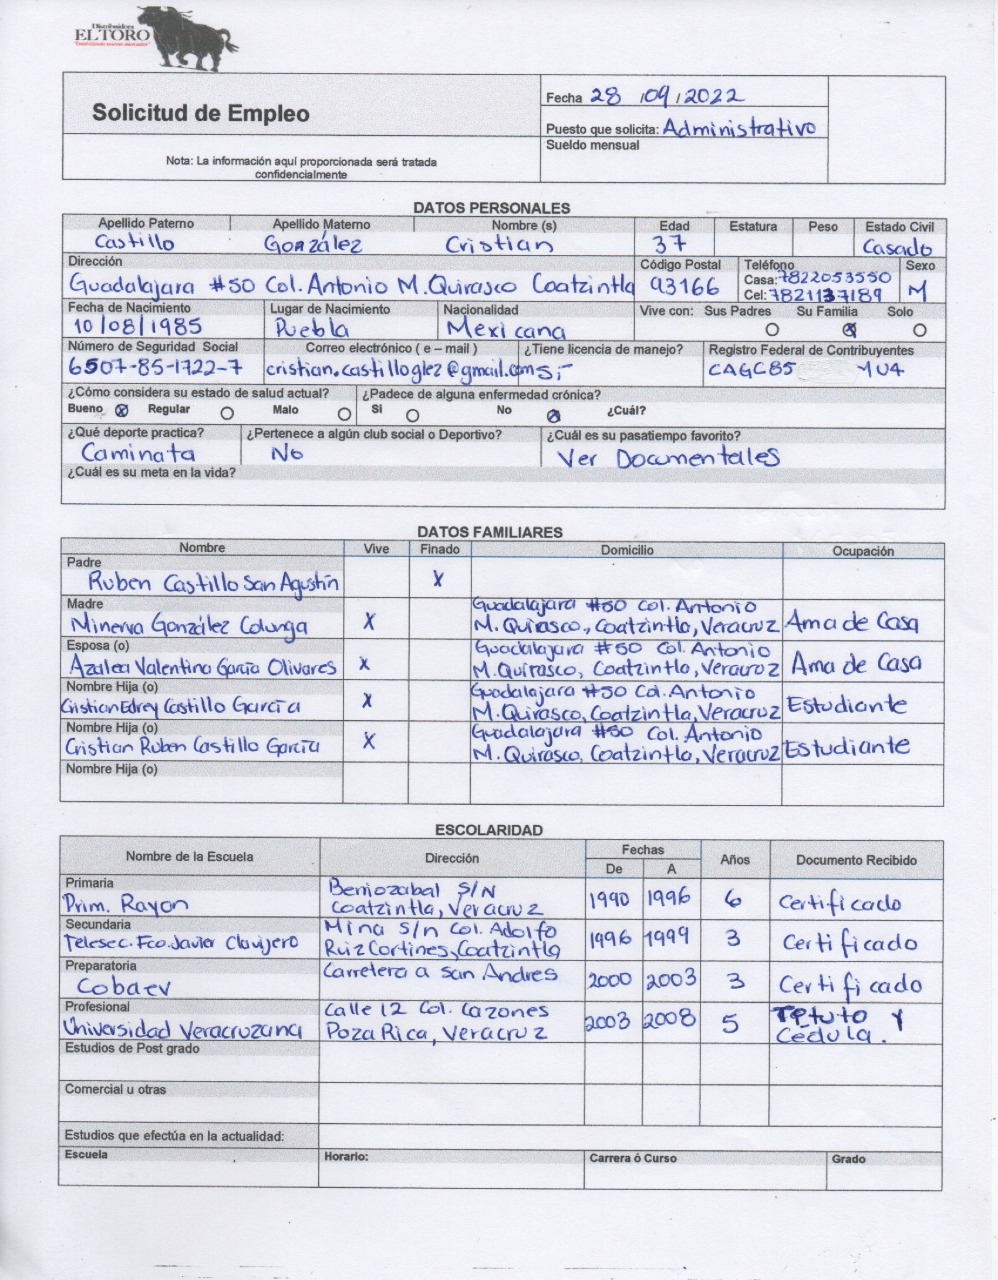 Distribuidora
EL TORO
Solicitud de Empleo
Nota: La información aquí proporcionada será tratada
confidencialmente
Fecha 28 /09/2022
Puesto que solicita: Administrativo
Sueldo mensual
DATOS PERSONALES
Apellido Paterno Apellido Materno Nombre (s) Edad Estatura Peso Estado Civil
Castillo González Cristian 37 Casado
Dirección Código Postal Teléfono Sexo
Guadalajara #50 Col. Antonio M. Quirasco Coatzintla 93166 Casa: 7822053550 M
Cel: 7821137189
Fecha de Nacimiento Lugar de Nacimiento Nacionalidad Vive con: Sus Padres Su Familia Solo
10/08/1985 Puebla Mexicana
Número de Seguridad Social Correo electrónico ( e – mail ) ¿Tiene licencia de manejo? Registro Federal de Contribuyentes
6507-85-1722-7 cristian.castilloglez@gmail.com Si CAGC85 1U4
¿Cómo considera su estado de salud actual? ¿Padece de alguna enfermedad crónica?
Bueno Regular Malo Si No ¿Cuál?
¿Qué deporte practica? ¿Pertenece a algún club social o Deportivo? ¿Cuál es su pasatiempo favorito?
Caminata No Ver Documentales
¿Cuál es su meta en la vida?
DATOS FAMILIARES
Nombre Vive Finado Domicilio Ocupación
Padre
Ruben Castillo San Agustín X
Madre
Minerva González Colunga X Guadalajara #50 Col. Antonio
M. Quirasco, Coatzintla, Veracruz Ama de Casa
Esposa (o)
Azalea Valentina García Olivares X Guadalajara #50 Col. Antonio
M. Quirasco, Coatzintla, Veracruz Ama de Casa
Nombre Hija (o)
Cristian Edrey Castillo García X Guadalajara #50 Col. Antonio
M. Quirasco, Coatzintla, Veracruz Estudiante
Nombre Hija (o)
Cristian Ruben Castillo García X Guadalajara #50 Col. Antonio
M. Quirasco, Coatzintla, Veracruz Estudiante
Nombre Hija (o)
ESCOLARIDAD
Nombre de la Escuela Dirección Fechas Años Documento Recibido
De A
Primaria
Prim. Rayon Beniozabal S/N
Coatzintla, Veracruz 1990 1996 6 Certificado
Secundaria
Telesec. Fco. Javier Clavijero Mina S/n Col. Adolfo
Ruiz Cortines, Coatzintla 1996 1999 3 Certificado
Preparatoria
Cobaev Carretera a San Andres 2000 2003 3 Certificado
Profesional
Universidad Veracruzana Calle 12 Col. Cazones
Poza Rica, Veracruz 2003 2008 5 Y
Cedula.
Estudios de Post grado
Comercial u otras
Estudios que efectúa en la actualidad:
Escuela Horario: Carrera ó Curso Grado